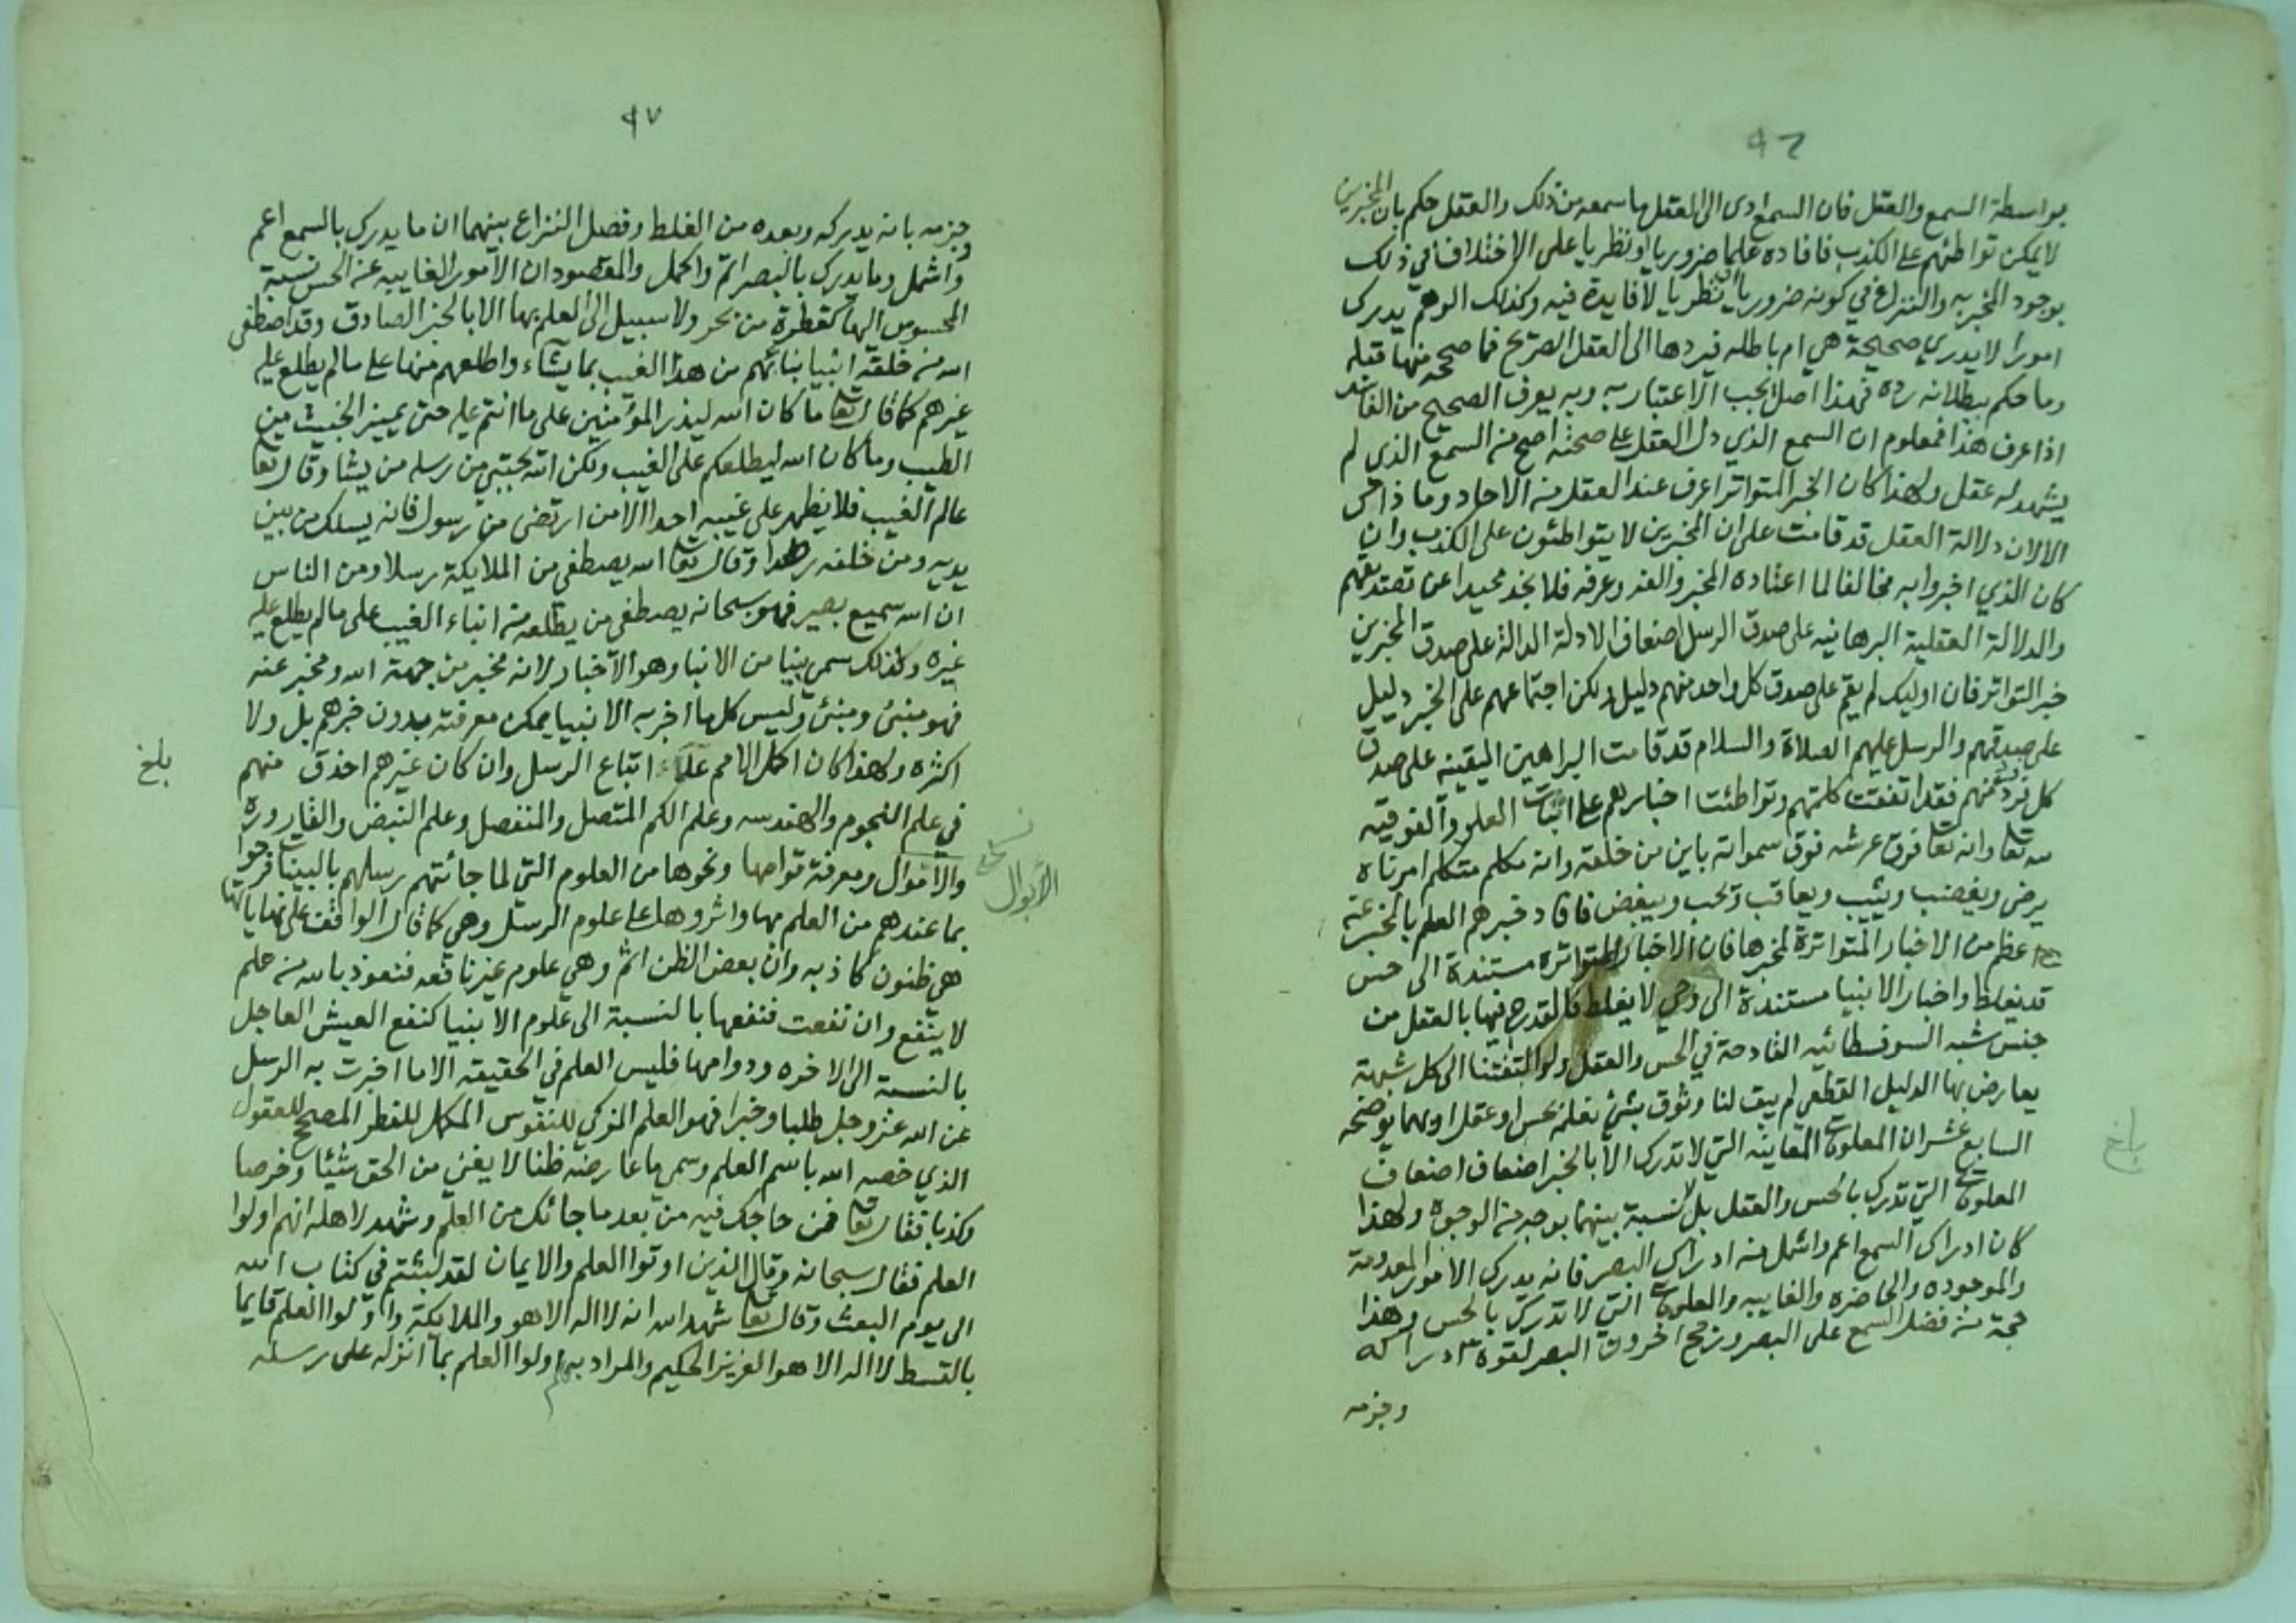 ٩٦
بواسطة السمع والعقل فان السمع ادى الى العقل ما سمعه من ذلك والعقل حكم بان المخبرين
لا يمكن تواطئهم على الكذب فافاده علما ضروريا او نظريا على الاختلاف في ذلك
بوجود المخبر به والنزاع في كونه ضروريا او نظريا لا فايدة فيه وكذلك الوهم يدرك
امورا لا يدري صحيحة هي ام باطله فيردها الى العقل الصريح فما صححه منها قبله
وما حكم ببطلانه رده فهذا اصل يجب الاعتبار به وبه يعرف الصحيح من الفاسد
اذا عرف هذا فمعلوم ان السمع الذي دل العقل على صحته اصح من السمع الذي لم
يشهد له عقل ولهذا كان الخبر المتواتر اعرف عند العقل من الاحاد وما ذاك
الا لان دلالة العقل قد قامت على ان المخبرين لا يتواطئون على الكذب وان
كان الذي اخبروا به مخالفا لما اعتاده المخبر والفه وعرفه فلا نجد محيدا عن تصديقهم
والدلالة العقلية البرهانيه على صدق الرسل اضعاف الادلة الدالة على صدق المخبرين
خبر التواتر فان اوليك لم يقم على صدق كل واحد منهم دليل ولكن اجتماعهم على الخبر دليل
على صدقهم والرسل عليهم الصلاة والسلام قد قامت البراهين اليقينيه على صدق
كل فرد منهم فقد اتفقت كلمتهم وتواطئت اخبارهم على اثبات العلو والفوقيه
لله تعا وانه تعا فوق عرشه فوق سمواته باين من خلقه وانه مكلم متكلم امر ناه
يرضى ويغضب ويثيب ويعاقب ويحب ويبغض فافاد خبرهم العلم بالمخبر عنه
اعظم من الاخبار المتواترة لمخبرها فان الاخبار المتواترة مستندة الى حس
قد يغلط واخبار الانبيا مستندة الى وحي لا يغلط فالقدح فيها بالعقل من
جنس شبه السوفسطائيه القادحة في الحس والعقل ولو التفتنا الى كل شبهة
يعارض بها الدليل القطعي لم يبق لنا وثوق بشئ نعلمه بحس او عقل او بهما يوضحه
السابع عشر ان المعلومات الغايبه التي لا تدرك الا بالخبر اضعاف اضعاف
المعلومات التي تدرك بالحس والعقل بل لا نسبة بينهما بوجه من الوجوه ولهذا
كان ادراك السمع اعم واشمل من ادراك البصر فانه يدرك الامور المعدومة
والموجوده والحاضره والغايبه والمعلومات التي لا تدرك بالحس وهذا
حجة من فضل السمع على البصر ورجح اخرون البصر لقوة ادراكه
وجزمه
بلغ
٩٧
وجزمه بانه يدركه وبعده من الغلط وفصل النزاع بينهما ان ما يدرك بالسمع اعم
واشمل وما يدرك بالبصر اتم واكمل والمقصود ان الامور الغايبه عن الحس نسبة
المحسوس اليها كقطرة من بحر ولا سبيل الى العلم بها الا بالخبر الصادق وقد اصطفى
الله من خلقه انبيا بنائهم من هذا الغيب بما يشاء واطلعهم منها على ما لم يطلع عليه
غيرهم كما قال تعا ما كان الله ليذر المؤمنين على ما انتم عليه حتى يميز الخبيث من
الطيب وما كان الله ليطلعكم على الغيب ولكن الله يجتبي من رسله من يشا وقال تعا
عالم الغيب فلا يظهر على غيبه احدا الا من ارتضى من رسول فانه يسلك من بين
يديه ومن خلفه رصدا وقال تعا الله يصطفي من الملايكة رسلا ومن الناس
ان الله سميع بصير فهو سبحانه يصطفي من يطلعه من انباء الغيب على ما لم يطلع عليه
غيره وكذلك سمي نبيا من الانبا وهو الاخبار لانه مخبر من جهة الله ومخبر عنه
فهو منبئ ومنبئ وليس كل ما اخبر به الانبيا يمكن معرفته بدون خبرهم بل ولا
اكثره ولهذا كان اكمل الامم علماء اتباع الرسل وان كان غيرهم احذق منهم
في علم النجوم والهندسه وعلم الكم المتصل والمنفصل وعلم النبض والقاروره
والاموال ومعرفة قوامها ونحوها من العلوم التي لما جائتهم رسلهم بالبينات فرحوا
بما عندهم من العلم بها واثروها على علوم الرسل وهي كما قال الواقف على نهاياتها
هي ظنون كاذبه وان بعض الظن اثم وهي علوم غير نافعه فنعوذ بالله من علم
لا ينفع وان نفعت فنفعها بالنسبة الى علوم الانبيا كنفع العيش العاجل
بالنسبة الى الاخره ودوامها فليس العلم في الحقيقه الا ما اخبرت به الرسل
عن الله عز وجل طلبا وخبرا فهو العلم المزكي للنفوس المكمل للفطر المصحح للعقول
الذي خصه الله باسم العلم وسمى ما عارضه ظنا لا يغني من الحق شيئا وخرصا
وكذبا فقال تعا فمن حاجك فيه من بعد ما جائك من العلم وشهد لاهله انهم اولوا
العلم فقال سبحانه وقال الذين اوتوا العلم والايمان لقد لبثتم في كتاب الله
الى يوم البعث وقال تعا شهد الله انه لا اله الا هو والملايكة واولوا العلم قايما
بالقسط لا اله الا هو العزيز الحكيم والمراد بهم اولوا العلم بما انزله على رسله
نسخ
الأبوال
بلغ